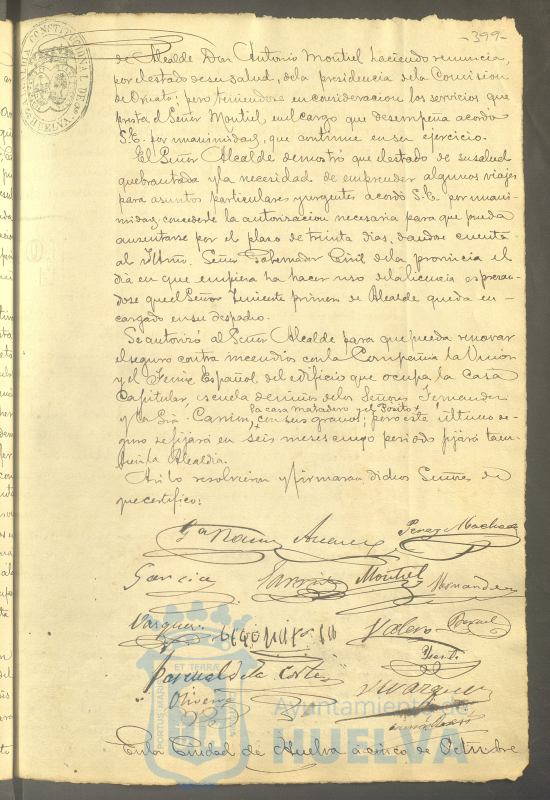 -399-
ALCALDIA CONSTITUCIONAL DE HUELVA
de Alcalde Don Antonio Montiel haciendo renuncia,
por el estado de su salud, de la presidencia de la Comision
de Ornato; pero teniendose en consideracion los servicios que
presta el Señor Montiel en el cargo que desempeña acordó
S.E. por unanimidad, que continue en su ejercicio.
El Señor Alcalde demostró que el estado de su salud
quebrantada y la necesidad de emprender algunos viajes
para asuntos particulares y urgentes acordó S.E. por unani-
midad, concederle la autorizacion necesaria para que pueda
ausentarse por el plazo de treinta dias, dando cuenta
al Iltmo. Señor Gobernador Civil de la provincia el
dia en que empiera ha hacer uso de la licencia expresan-
dose que el Señor Teniente primero de Alcalde queda en-
cargado en su despacho.
Se autorizó al Señor Alcalde para que pueda renovar
el seguro contra incendios con la Compañia La Union
y el Fenix Español del edificio que ocupa la Casa
Capitular, escuela de niños de los Señores Fernandez
y la Srâ. Carrion,
la casa matadero y el Posito
con sus granos; pero este ultimo se-
guro se fijará en seis meses cuyo periodo fijará tam-
bien la Alcaldia.
Asi lo resolvieron y firmaran dichos Señores de
que certifico:
Perez Machado
Garcia
Montiel
Hernandez
Vazquez
Valero
Pascual de la Corte
Olivera
Vazquez
PORTUS MARIS ET TERRAE
Ayuntamiento de
HUELVA
En la Ciudad de Huelva a cinco de Octubre